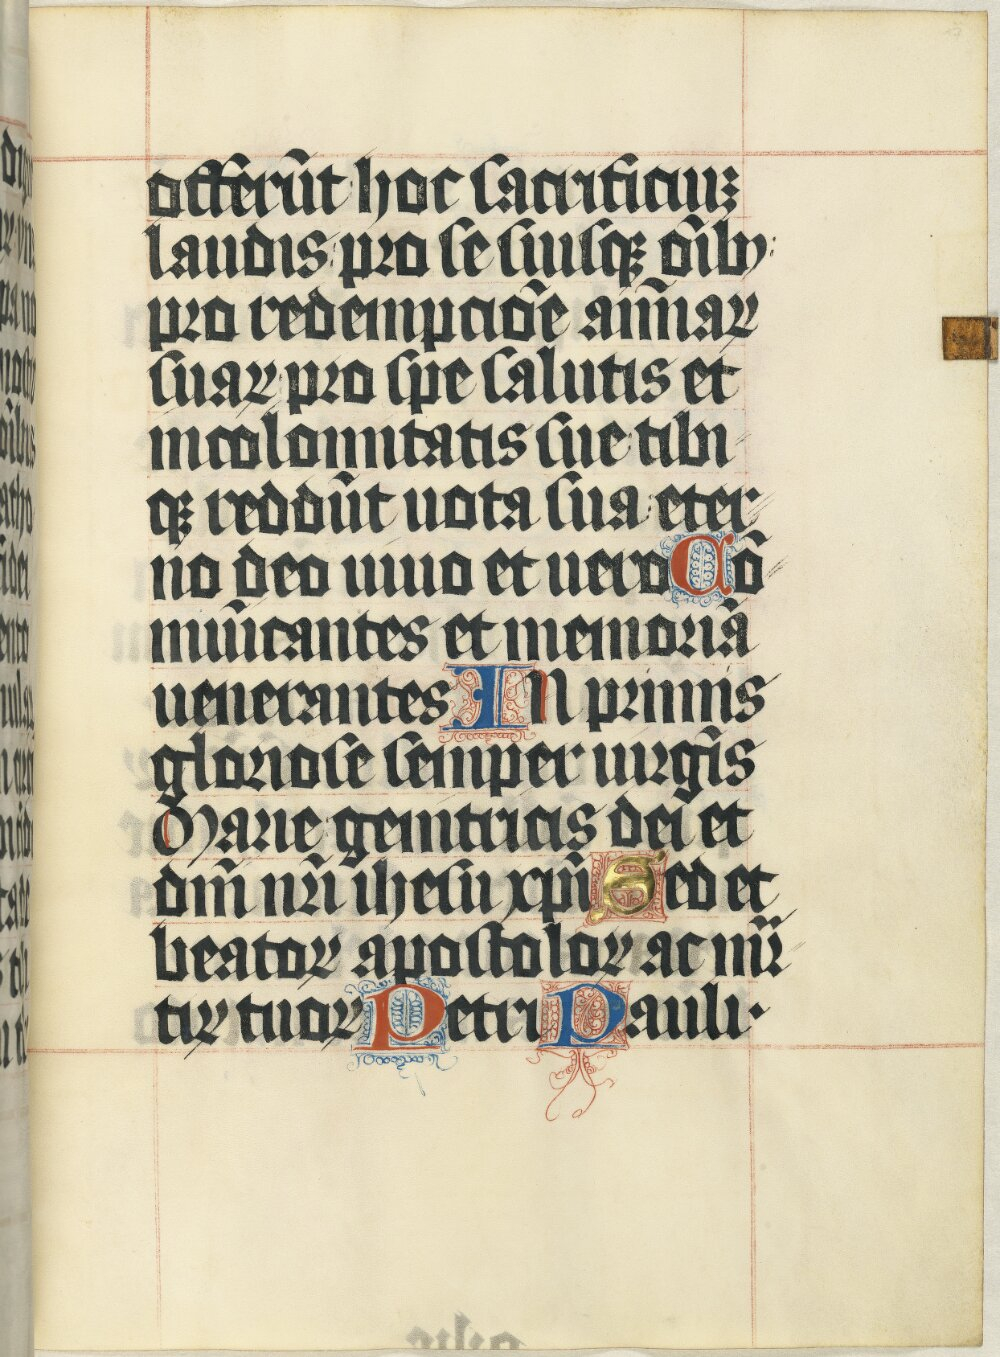 offerūt hoc sacrificiuꝫ
laudis pro se suisqꝫ oībꝯ:
pro redempcioē aīmaꝝ
suaꝝ pro spe salutis et
incolomitatis sue tibi
qꝫ reddūt uota sua eter
no deo uiuo et uero Cō
mūicantes et memoriā
uenerantes In primis
gloriose semper uirgīs
Marie genitricis dei et
dn̄i nr̄i ihesu xp̄i Sed et
beatoꝝ apostoloꝝ ac mr̄
tiꝝ tuoꝝ Petri Pauli·